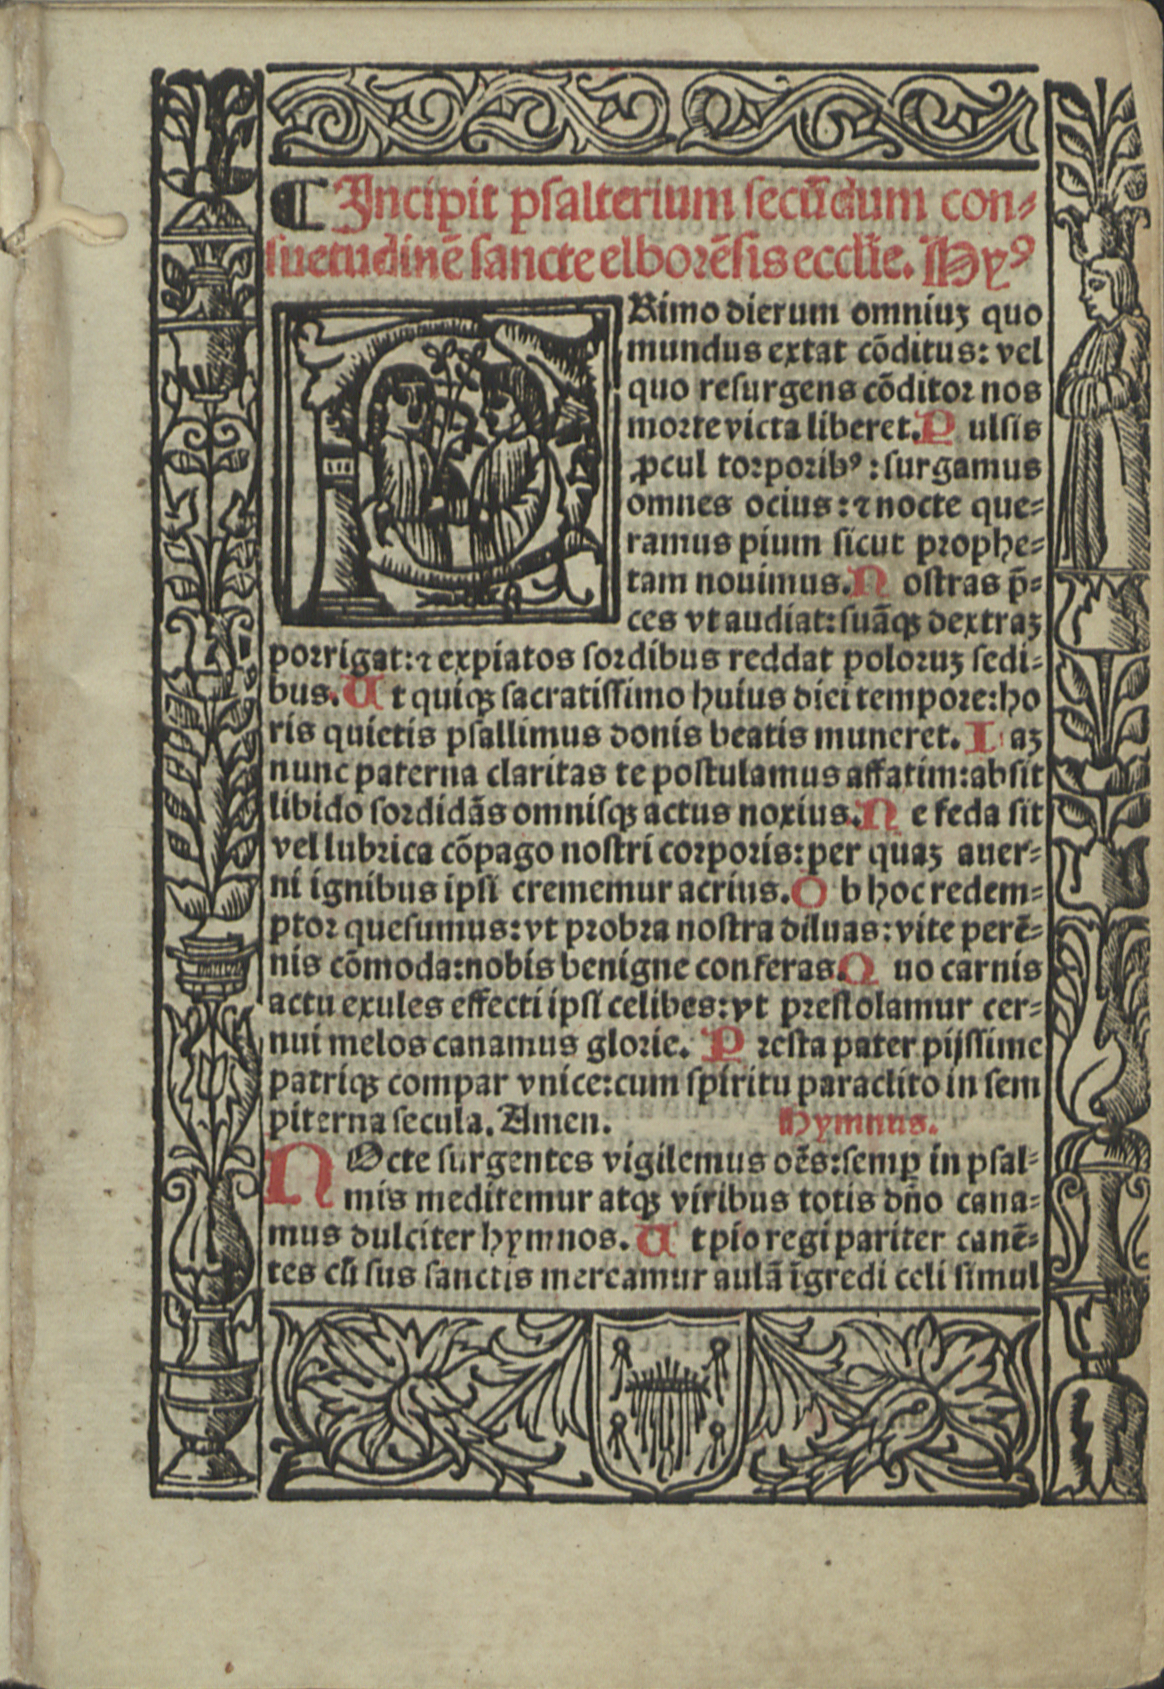 ¶ Incipit psalterium secūdum con-
suetudinē sancte elborēsis ecclīe. Hyꝰ
PRimo dierum omniuꝫ quo
mundus extat cōditus: vel
quo resurgens cōditor nos
morte victa liberet. P ulsis
ꝓcul torporibꝰ: surgamus
omnes ocius: ⁊ nocte que-
ramus pium sicut prophe-
tam nouimus. N ostras p̄-
ces vt audiat: suāqꝫ dextraꝫ
porrigat: ⁊ expiatos sordibus reddat poloruꝫ sedi-
bus. U t quiqꝫ sacratissimo huius diei tempore: ho
ris quietis psallimus donis beatis muneret. I aꝫ
nunc paterna claritas te postulamus affatim: absit
libido sordidās omnisqꝫ actus noxius. N e feda sit
vel lubrica cōpago nostri corporis: per quaꝫ auer-
ni ignibus ipsi crememur acrius. O b hoc redem-
ptor quesumus: vt probra nostra diluas: vite perē-
nis cōmoda: nobis benigne conferas. Q uo carnis
actu exules effecti ipsi celibes: vt prestolamur cer-
nui melos canamus glorie. P resta pater pijssime
patriqꝫ compar vnice: cum spiritu paraclito in sem
piterna secula. Amen. Hymnus.
NOcte surgentes vigilemus oēs: semꝑ in psal-
mis meditemur atqꝫ viribus totis dño cana-
mus dulciter hymnos. U t pio regi pariter canē-
tes cū suis sanctis mereamur aulā īgredi celi simul